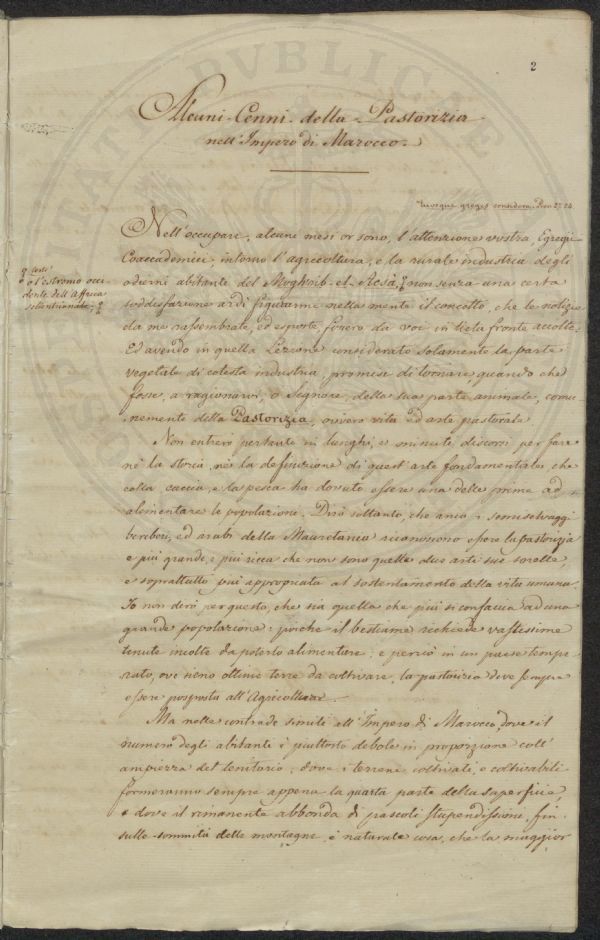 2
Alcuni Cenni della Pastorizia
nell'Impero di Marocco.
tuosque greges considera. Prov. 27. 23.
Nell'occupare, alcuni mesi or sono, l'attenzione vostra, Egregi
Coaccademici, intorno l'agricoltura, e la rurale industria degli
odierni abitanti del Moghrib-el-Acsà, non senza una certa
o l'estremo occi-
dente dell'Affrica
settentrionale
soddisfazione ardì figurarmi nella mente il concetto, che le notizie
da me rassembrate, ed esposte, furono da voi in lieta fronte accolte.
Ed avendo in quella Lezione considerato solamente la parte
vegetale di cotesta industria, promisi di tornare, quando che
fosse, a ragionarvi, o Signori, della sua parte animale, comu-
nemente detta Pastorizia, ovvero vita ed arte pastorale.
Non entrerò pertanto in lunghi, e minuti discorsi per fare
nè la storia, nè la definizione di quest'arte fondamentale, che
colla caccia, e la pesca ha dovuto essere una delle prime ad
alimentare le popolazione. Dirò soltanto, che anco i semiselvaggi
berberi, ed arabi della Mauretania riconoscono essere la pastorizia
e più grande, e più ricca che non sono quelle due arti sue sorelle,
e soprattutto più appropriata al sostentamento della vita umana.
Io non dirò per questo, che sia quella che più si confaccia ad una
grande popolazione: poichè il bestiame richiede vastissime
tenute incolte da poterlo alimentare; e perciò in un paese tempe-
rato, ove sieno ottime terre da coltivare, la pastorizia deve sempre
essere posposta all'Agricoltura.
Ma nelle contrade simili all'Impero di Marocco, dove il
numero degli abitanti è piuttosto debole in proporzione coll'
ampiezza del territorio; dove i terreni coltivati, e coltivabili
formeranno sempre appena la quarta parte della superficie,
e dove il rimanente abbonda di pascoli stupendissimi fin
sulle sommità delle montagne, è naturale cosa, che la maggior